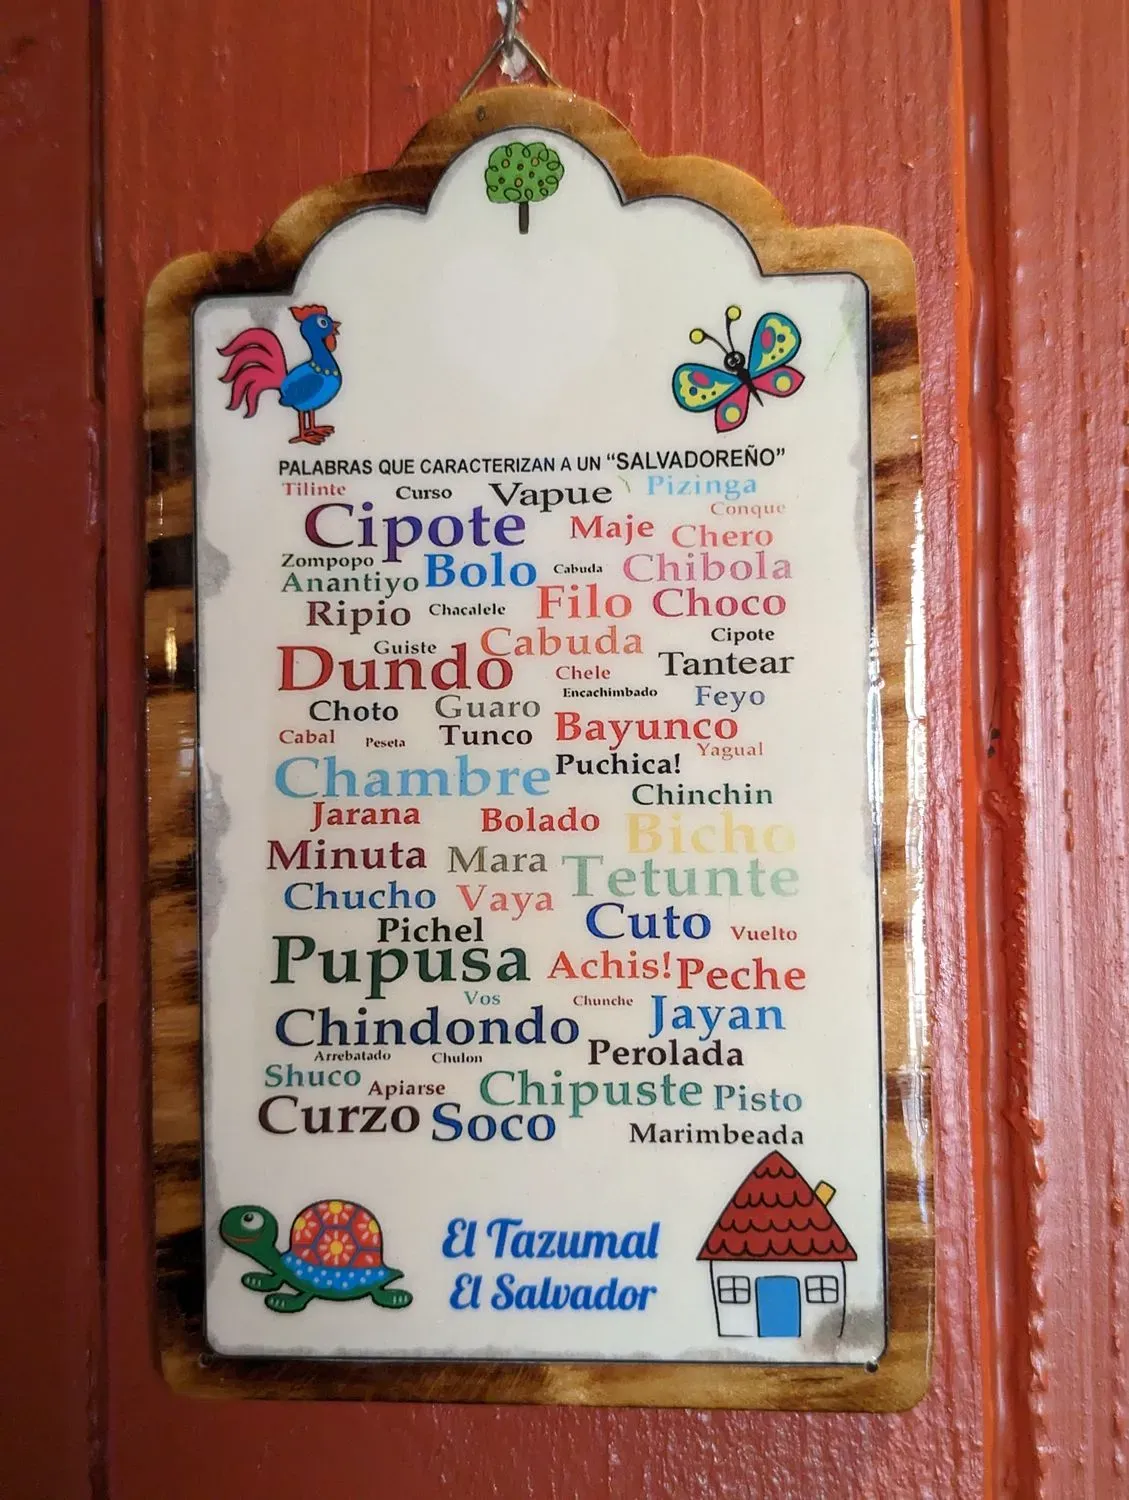 PALABRAS QUE CARACTERIZAN A UN “SALVADOREÑO”
Tilinte Curso Vapue Pizinga
Conque
Cipote Maje Chero
Zompopo Bolo Cabuda Chibola
Anantiyo
Ripio Chacalele Filo Choco
Guiste Cabuda Cipote
Dundo Chele Tantear
Encachimbado Feyo
Choto Guaro Bayunco
Cabal Peseta Tunco Yagual
Chambre Puchica!
Chinchin
Jarana Bolado Bicho
Minuta Mara Tetunte
Chucho Vaya Cuto Vuelto
Pichel
Pupusa Achis! Peche
Vos Chunche Jayan
Chindondo
Arrebatado Chulon Perolada
Shuco Apiarse Chipuste Pisto
Curzo Soco Marimbeada
El Tazumal
El Salvador